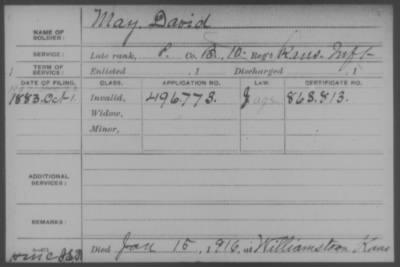 May, David
NAME OF SOLDIER:
SERVICE: Late rank, P. Co. B, 10. Reg't Kans. Inf.
TERM OF SERVICE: Enlisted , 1 Discharged , 1
DATE OF FILING. CLASS. APPLICATION NO. LAW. CERTIFICATE NO.
1883. Oct. 1. Invalid, 496.773. 863.813.
Widow,
Minor,
ADDITIONAL SERVICES:
REMARKS:
Died Jan 15, 1916, at Williamstown Kans